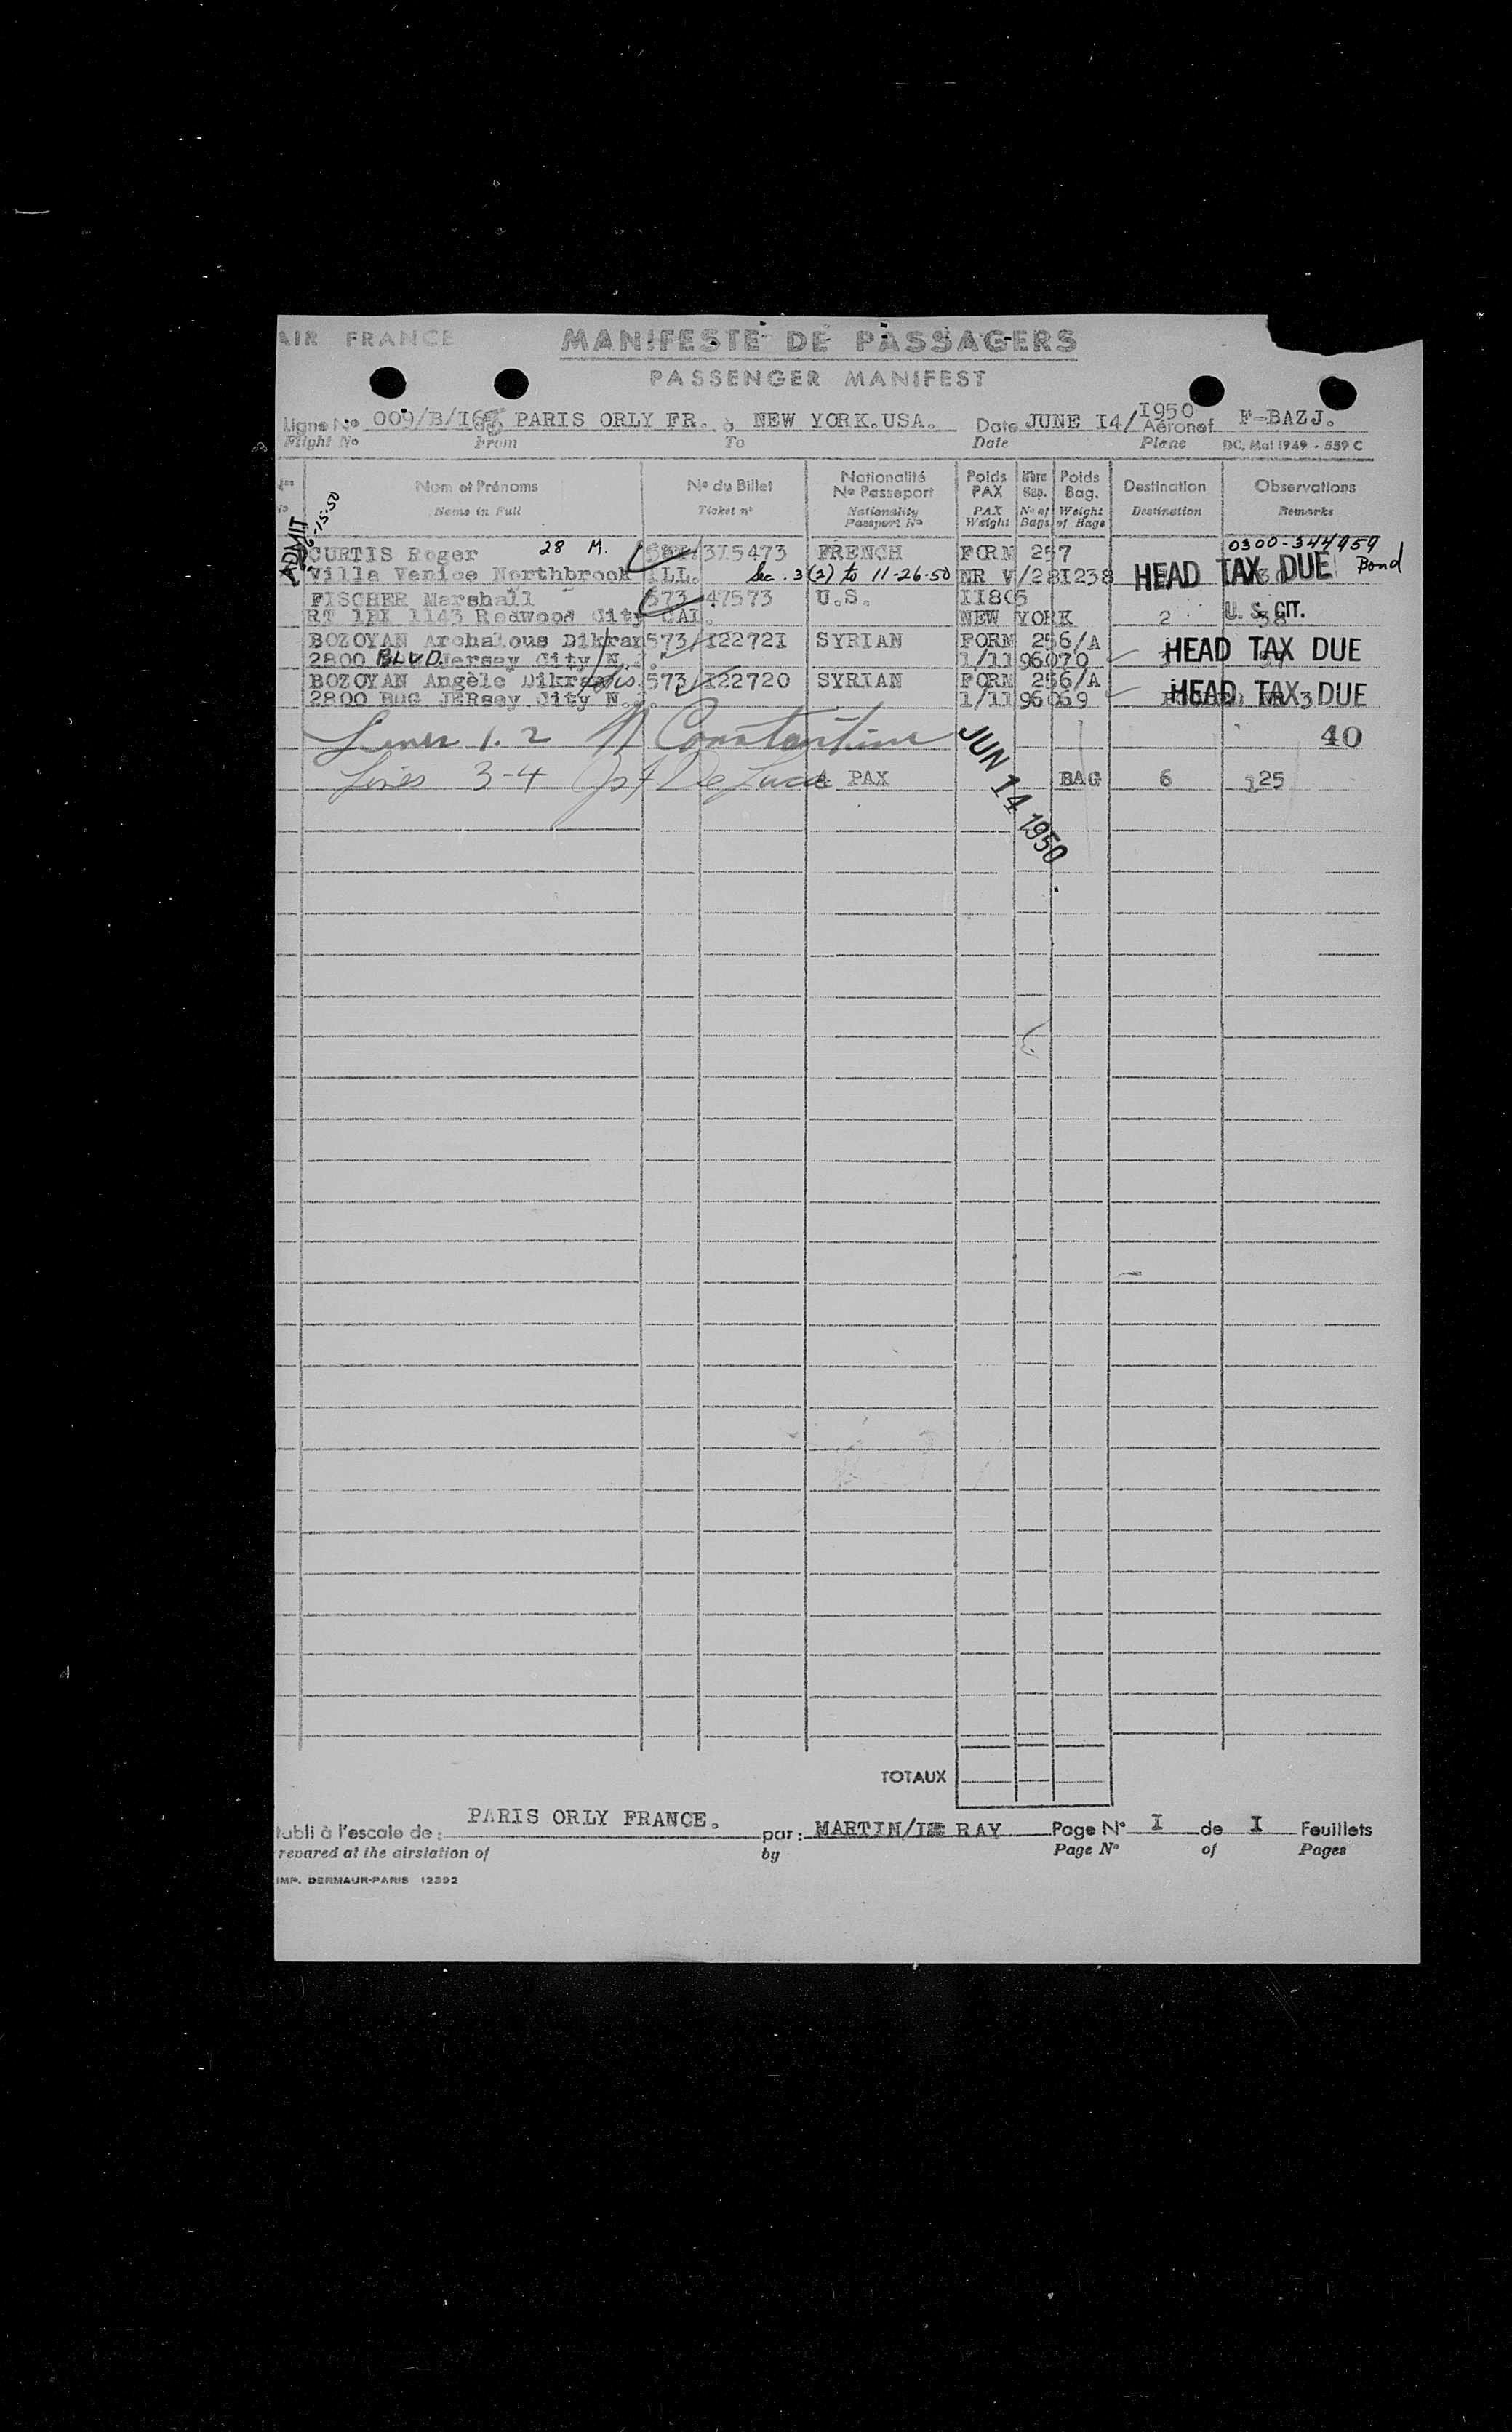 AIR FRANCE MANIFESTE DE PASSAGERS
PASSENGER MANIFEST
Ligne No 009/B/16 PARIS ORLY FR. à NEW YORK.USA. Date JUNE I4/I950 Aéronef F-BAZJ.
Flight No From To Date Plane DC. Mai 1949 - 559 C
Nom et Prénoms No du Billet Nationalité No Passeport Poids PAX Nbre Bag. Poids Bag. Destination Observations
Name in Full Ticket no Nationality Passport No PAX Weight No of Bags Weight of Bags Destination Remarks
ADMIT 6-15-50
CURTIS Roger 28 M. 3I5473 FRENCH FORM 257 0300-344959
Villa Venice Northbrook ILL. Sec. 3(2) to 11-26-50 NR V/28I238 HEAD TAX DUE Bond
FISCHER Marshall 573 47573 U.S. II805
RT 1BX 1143 Redwood City CAL. NEW YORK 2 U. S. CIT.
BOZOYAN Archalous Dikran 573/I2272I SYRIAN FORM 256/A
2800 BLVD. Jersey City N.J. 1/1196070 HEAD TAX DUE
BOZOYAN Angèle Dikran 573/I22720 SYRIAN FORM 256/A
2800 BUG JERsey City N.J. 1/1196069 HEAD TAX DUE
Lines 1. 2 Constantine 40
Lines 3-4 De Luca 4 PAX BAG 6 125
JUN 14 1950
TOTAUX
tabli à l'escale de: PARIS ORLY FRANCE. par: MARTIN/LE RAY Page No I de I Feuillets
repared at the airstation of by Page No of Pages
IMP. DERMAUR-PARIS 12392